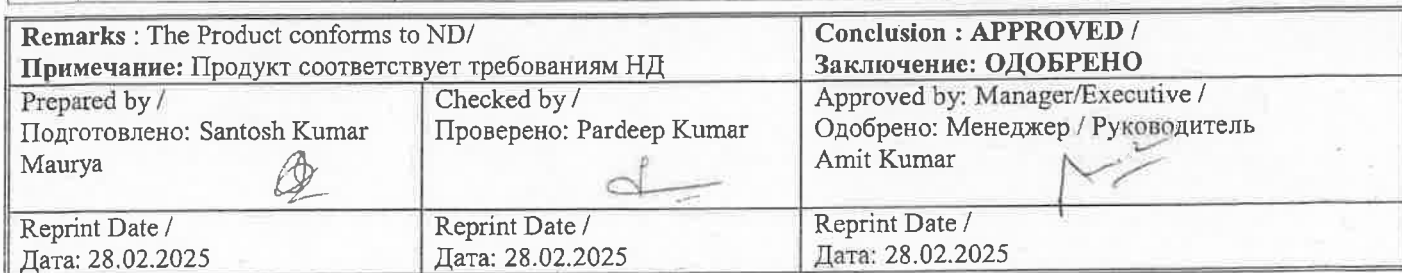 Remarks : The Product conforms to ND/
Примечание: Продукт соответствует требованиям НД
Conclusion : APPROVED /
Заключение: ОДОБРЕНО
Prepared by /
Подготовлено: Santosh Kumar
Maurya
Checked by /
Проверено: Pardeep Kumar
Approved by: Manager/Executive /
Одобрено: Менеджер / Руководитель
Amit Kumar
Reprint Date /
Дата: 28.02.2025
Reprint Date /
Дата: 28.02.2025
Reprint Date /
Дата: 28.02.2025